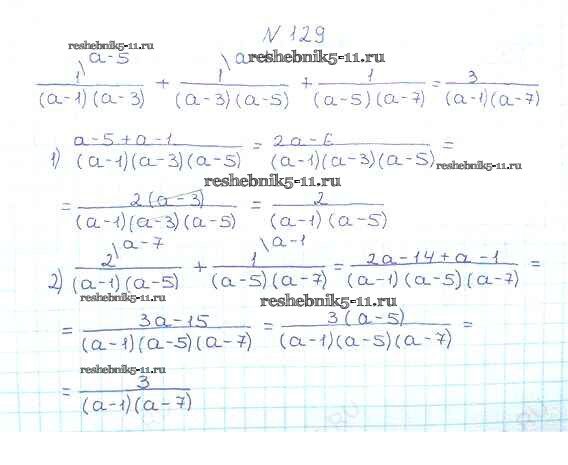 N 129
reshebnik5-11.ru
reshebnik5-11.ru
1\a-5/((a-1)(a-3)) + 1\a/((a-3)(a-5)) + 1/((a-5)(a-7)) = 3/((a-1)(a-7))
1) (a-5+a-1)/((a-1)(a-3)(a-5)) = (2a-6)/((a-1)(a-3)(a-5)) =
reshebnik5-11.ru
reshebnik5-11.ru
= 2(a-3)/((a-1)(a-3)(a-5)) = 2/((a-1)(a-5))
2) 2\a-7/((a-1)(a-5)) + 1\a-1/((a-5)(a-7)) = (2a-14+a-1)/((a-1)(a-5)(a-7)) =
reshebnik5-11.ru
reshebnik5-11.ru
= (3a-15)/((a-1)(a-5)(a-7)) = 3(a-5)/((a-1)(a-5)(a-7)) =
reshebnik5-11.ru
= 3/((a-1)(a-7))